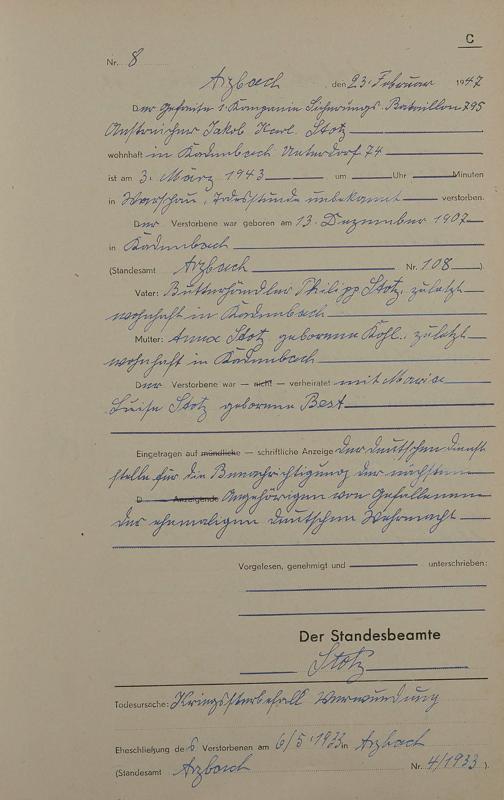 C
Nr. 8
Arzbach, den 23. Februar 1947
Der Gefreite 1. Kompanie Sicherungs-Bataillon 795
Anstreicher Jakob Karl Stotz
wohnhaft in Kadenbach Unterdorf 74
ist am 3. März 1943 um Uhr Minuten
in Warschau, Todesstunde unbekannt verstorben.
Der Verstorbene war geboren am 13. Dezember 1907
in Kadenbach
(Standesamt Arzbach Nr. 108 ).
Vater: Butterhändler Philipp Stotz, zuletzt
wohnhaft in Kadenbach
Mutter: Anna Stotz geborene Kohl, zuletzt
wohnhaft in Kadenbach
Der Verstorbene war — nicht — verheiratet mit Maria
Luise Stotz geborene Best
Eingetragen auf mündliche — schriftliche Anzeige der deutschen Dienst
stelle für die Benachrichtigung der nächsten
D Anzeigende Angehörigen von Gefallenen
der ehemaligen deutschen Wehrmacht
Vorgelesen, genehmigt und unterschrieben:
Der Standesbeamte
Stotz
Todesursache: Kriegssterbefall Verwundung
Eheschließung des Verstorbenen am 6/5.1933 in Arzbach
(Standesamt Arzbach Nr. 4/1933 ).